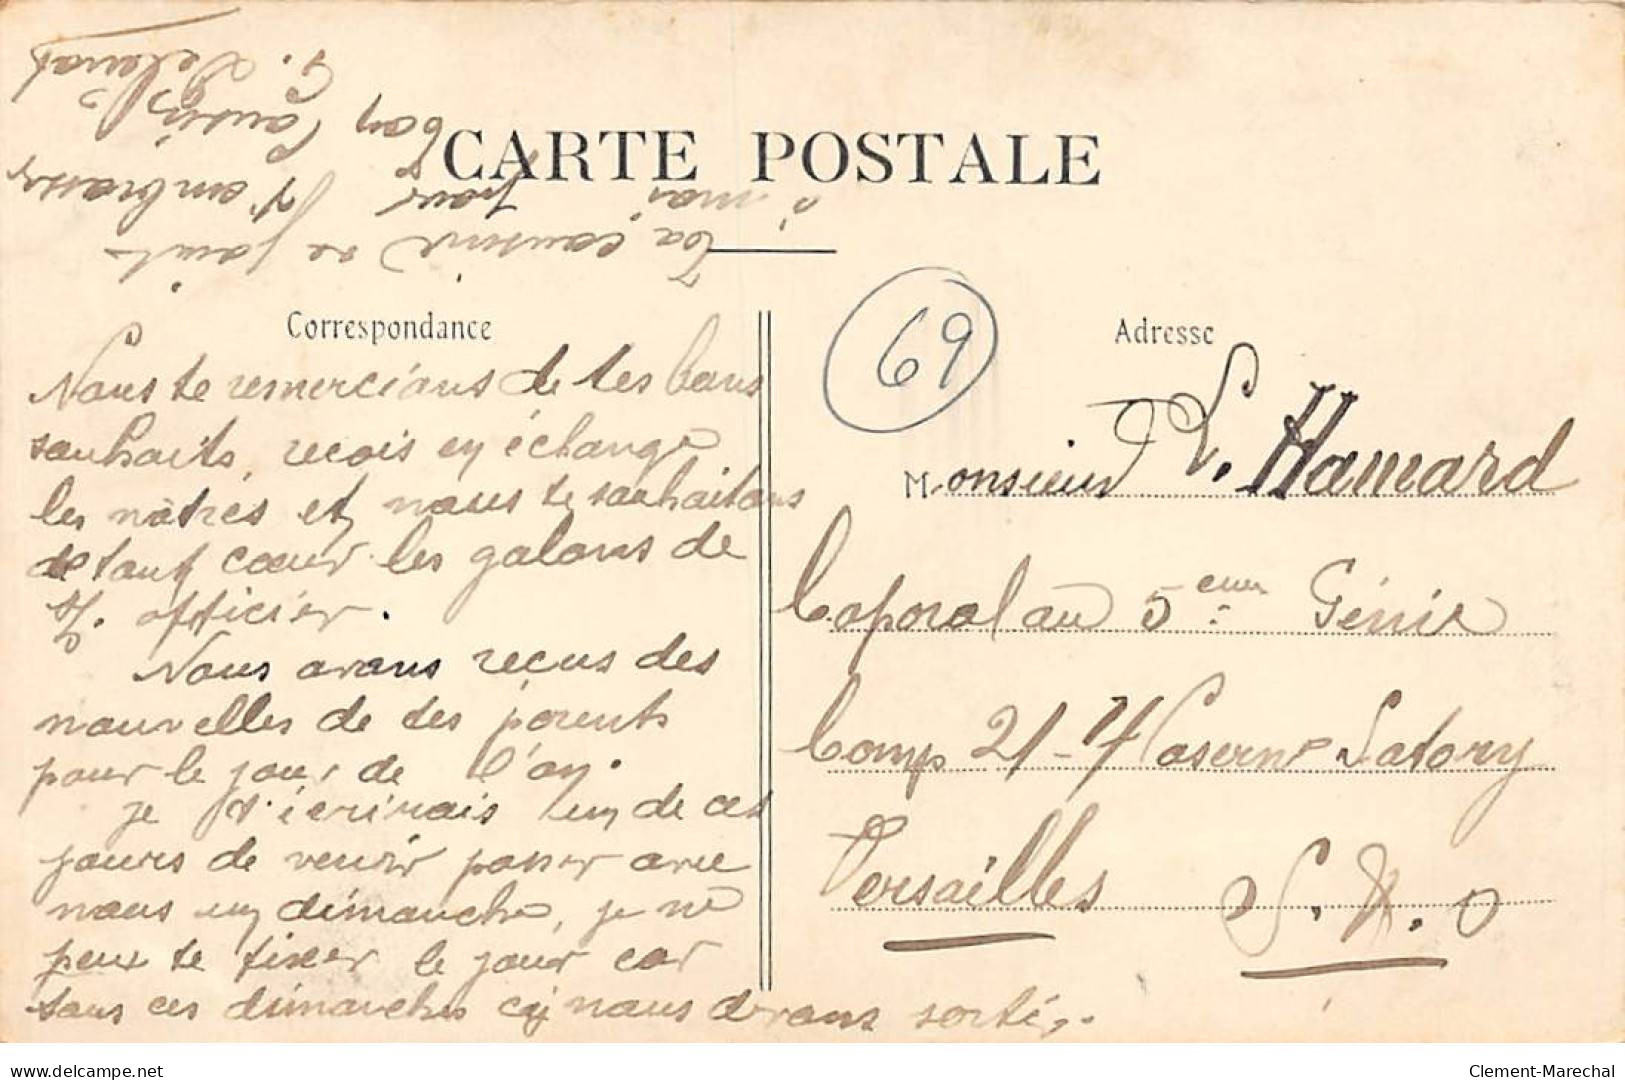 CARTE POSTALE
Correspondance
Nous te remercions de tes bons
souhaits, reçois en échange
les nôtres et nous te souhaitons
de tout cœur les galons de
s/. officier.
Nous avons reçus des
nouvelles de tes parents
pour le jour de l'an.
je t'ecrirais un de ces
jours de venir passer avec
nous un dimanche, je ne
peux te fixer le jour car
tous ces dimanches ci nous devons sortir.
Ta cousine se joint
à moi pour t'embrasser
ton Cousin
G.
69
Adresse
Monsieur L. Hamard
Caporal au 5eme Génie
Comp 21-7 Caserne Satory
Versailles S. & O
delcampe.net
Clement-Marechal